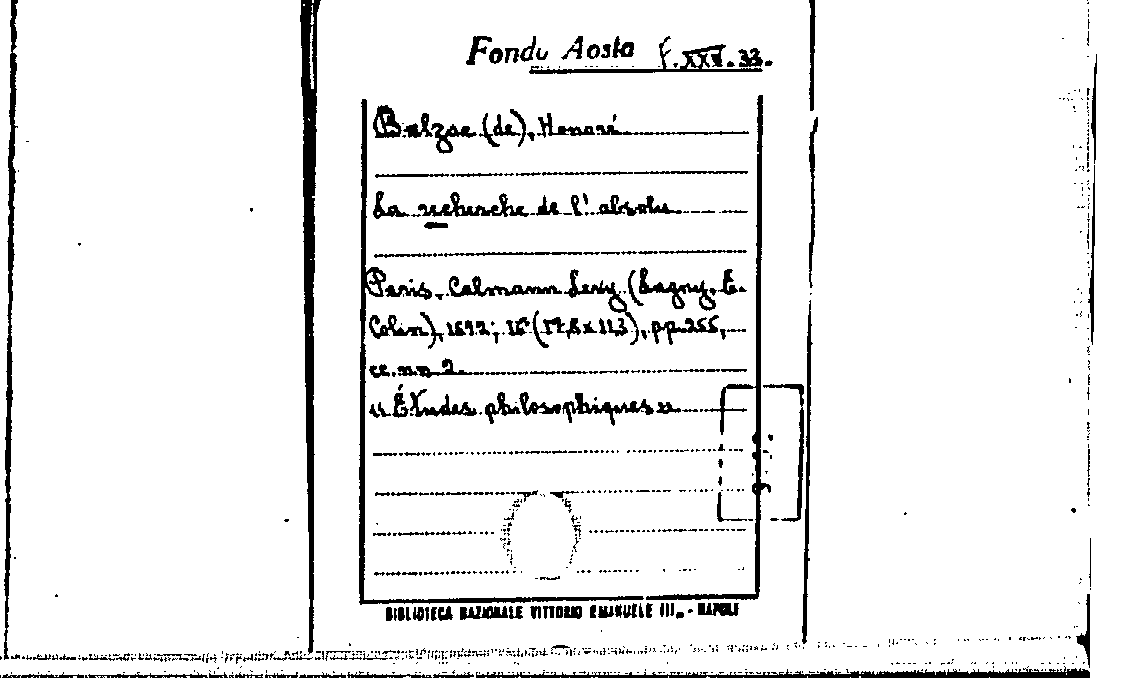 Fondo Aosta F. XXV. 33.
Balzac (de), Honoré
La recherche de l'absolu
Paris, Calmann Levy (Lagny, E.
Colin), 1892; 16° (17,8x11,3), pp. 255,
cc. nn 2.
"Études philosophiques"
BIBLIOTECA NAZIONALE VITTORIO EMANUELE III. - NAPOLI